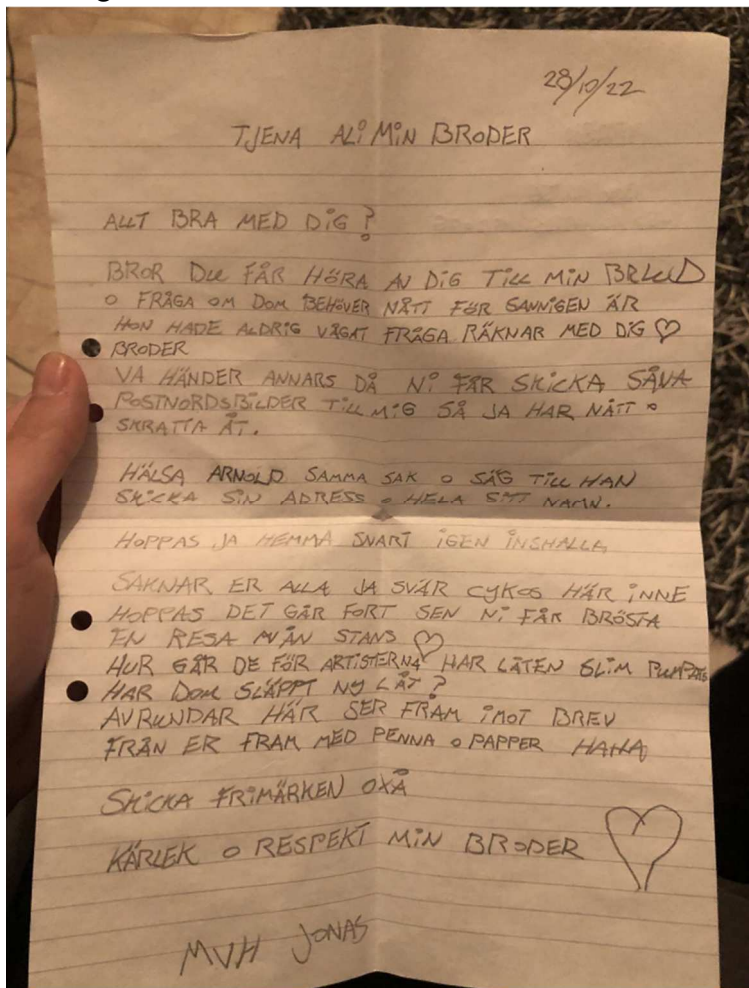 28/10/22
TJENA ALI MIN BRODER
ALLT BRA MED DIG?
BROR DU FÅR HÖRA AV DIG TILL MIN BRUD
O FRÅGA OM DOM BEHÖVER NÅTT FÖR SANNIGEN ÄR
HON HADE ALDRIG VÅGAT FRÅGA RÄKNAR MED DIG ♡
BRODER
VA HÄNDER ANNARS DÅ NI FÅR SKICKA SÅNA
POSTNORDSBILDER TILL MIG SÅ JA HAR NÅTT o
SKRATTA ÅT.
HÄLSA ARNOLD SAMMA SAK o SÄG TILL HAN
SKICKA SIN ADRESS o HELA SITT NAMN.
HOPPAS JA HEMMA SNART IGEN INSHALLA
SAKNAR ER ALLA JA SVÄR CYKOS HÄR INNE
HOPPAS DET GÅR FORT SEN NI FÅR BRÖSTA
EN RESA NÅN STANS ♡
HUR GÅR DE FÖR ARTISTERNA HAR LÅTEN SLIM PUMPATS
HAR DOM SLÄPPT NY LÅT?
AVRUNDAR HÄR SER FRAM IMOT BREV
FRÅN ER FRAM MED PENNA o PAPPER HAHA
SKICKA FRIMÄRKEN OXÅ
KÄRLEK o RESPEKT MIN BRODER ♡
MVH JONAS